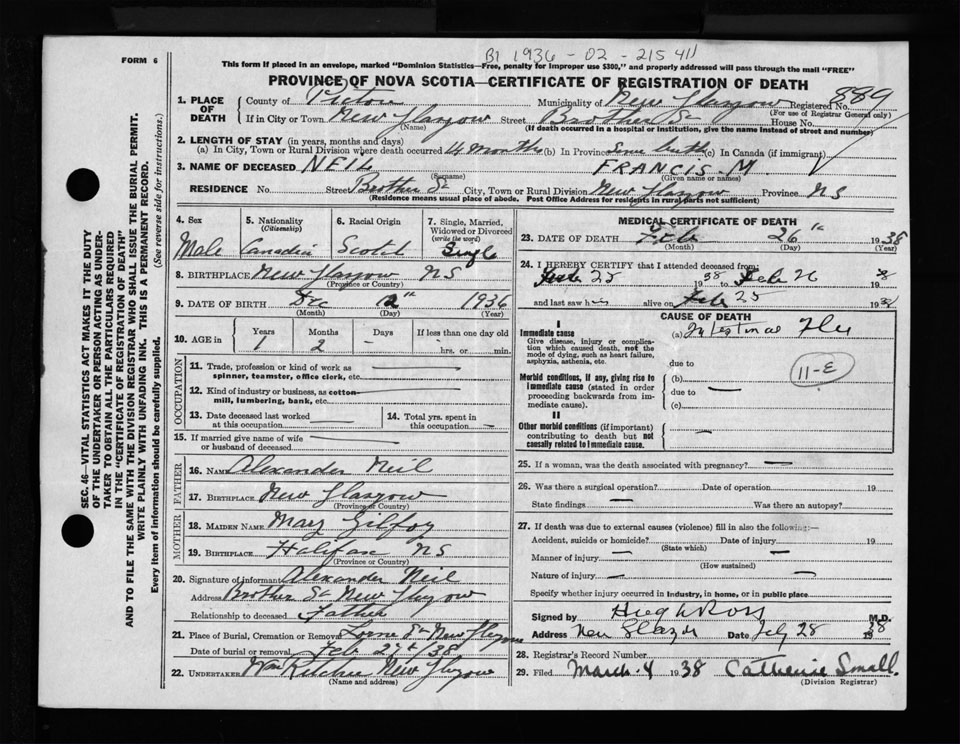 B1 1936 - 02 - 215411
FORM 6
This form if placed in an envelope, marked "Dominion Statistics—Free, penalty for improper use $300," and properly addressed will pass through the mail "FREE"
PROVINCE OF NOVA SCOTIA—CERTIFICATE OF REGISTRATION OF DEATH
1. PLACE OF DEATH County of Pictou Municipality of New Glasgow Registered No. 889
(For use of Registrar General only)
If in City or Town New Glasgow Street Brother St House No.
(Name) (If death occurred in a hospital or institution, give the name instead of street and number)
2. LENGTH OF STAY (in years, months and days)
(a) In City, Town or Rural Division where death occurred 14 months (b) In Province Since birth (c) In Canada (if immigrant)
3. NAME OF DECEASED NEIL FRANCIS. M.
(Surname) (Given name or names)
RESIDENCE No. Street Brother St City, Town or Rural Division New Glasgow Province NS
(Residence means usual place of abode. Post Office Address for residents in rural parts not sufficient)
4. Sex Male
5. Nationality (Citizenship)
6. Racial Origin Scotch
7. Single, Married, Widowed or Divorced (write the word) Single
8. BIRTHPLACE New Glasgow NS
(Province or Country)
9. DATE OF BIRTH Dec 12" 1936
(Month) (Day) (Year)
10. AGE in Years Months Days If less than one day old
1 2 — — hrs. or — min.
OCCUPATION
11. Trade, profession or kind of work as spinner, teamster, office clerk, etc. —
12. Kind of industry or business, as cotton-mill, lumbering, bank, etc. —
13. Date deceased last worked at this occupation —
14. Total yrs. spent in this occupation —
15. If married give name of wife or husband of deceased —
FATHER
16. NAME Alexander Neil
17. BIRTHPLACE New Glasgow
(Province or Country)
MOTHER
18. MAIDEN NAME Mary Gilfoy
19. BIRTHPLACE Halifax NS
(Province or Country)
20. Signature of informant Alexander Neil
Address Brother St New Glasgow
Relationship to deceased Father
21. Place of Burial, Cremation or Removal Lorne St New Glasgow
Date of burial or removal Feb 27th 38
22. UNDERTAKER Wm Ritchie New Glasgow
(Name and address)
MEDICAL CERTIFICATE OF DEATH
23. DATE OF DEATH Feb 26" 1938
(Month) (Day) (Year)
24. I HEREBY CERTIFY that I attended deceased from:
Feb 25 1938 to Feb 26
and last saw h alive on Feb 25 193
CAUSE OF DEATH
I
Immediate cause
Give disease, injury or complication which caused death, not the mode of dying, such as heart failure, asphyxia, asthenia, etc.
(a) Intestinal Flu
due to
11-E
Morbid conditions, if any, giving rise to immediate cause (stated in order proceeding backwards from immediate cause).
(b) —
due to
(c)
II
Other morbid conditions (if important) contributing to death but not causally related to immediate cause. —
25. If a woman, was the death associated with pregnancy? —
26. Was there a surgical operation? — Date of operation — 19
State findings — Was there an autopsy?
27. If death was due to external causes (violence) fill in also the following:—
Accident, suicide or homicide? Date of injury 19
(State which)
Manner of injury — —
(How sustained)
Nature of injury — —
Specify whether injury occurred in Industry, in home, or in public place
Signed by Hugh Ross M.D.
Address New Glasgow Date Feby 28 1938
28. Registrar's Record Number
29. Filed March 4 1938 Catherine Small.
(Division Registrar)
SEC. 46—VITAL STATISTICS ACT MAKES IT THE DUTY
OF THE UNDERTAKER OR PERSON ACTING AS UNDER-
TAKER TO OBTAIN ALL THE PARTICULARS REQUIRED
IN THE "CERTIFICATE OF REGISTRATION OF DEATH"
AND TO FILE THE SAME WITH THE DIVISION REGISTRAR WHO SHALL ISSUE THE BURIAL PERMIT.
WRITE PLAINLY WITH UNFADING INK. THIS IS A PERMANENT RECORD.
Every item of information should be carefully supplied. (See reverse side for instructions.)